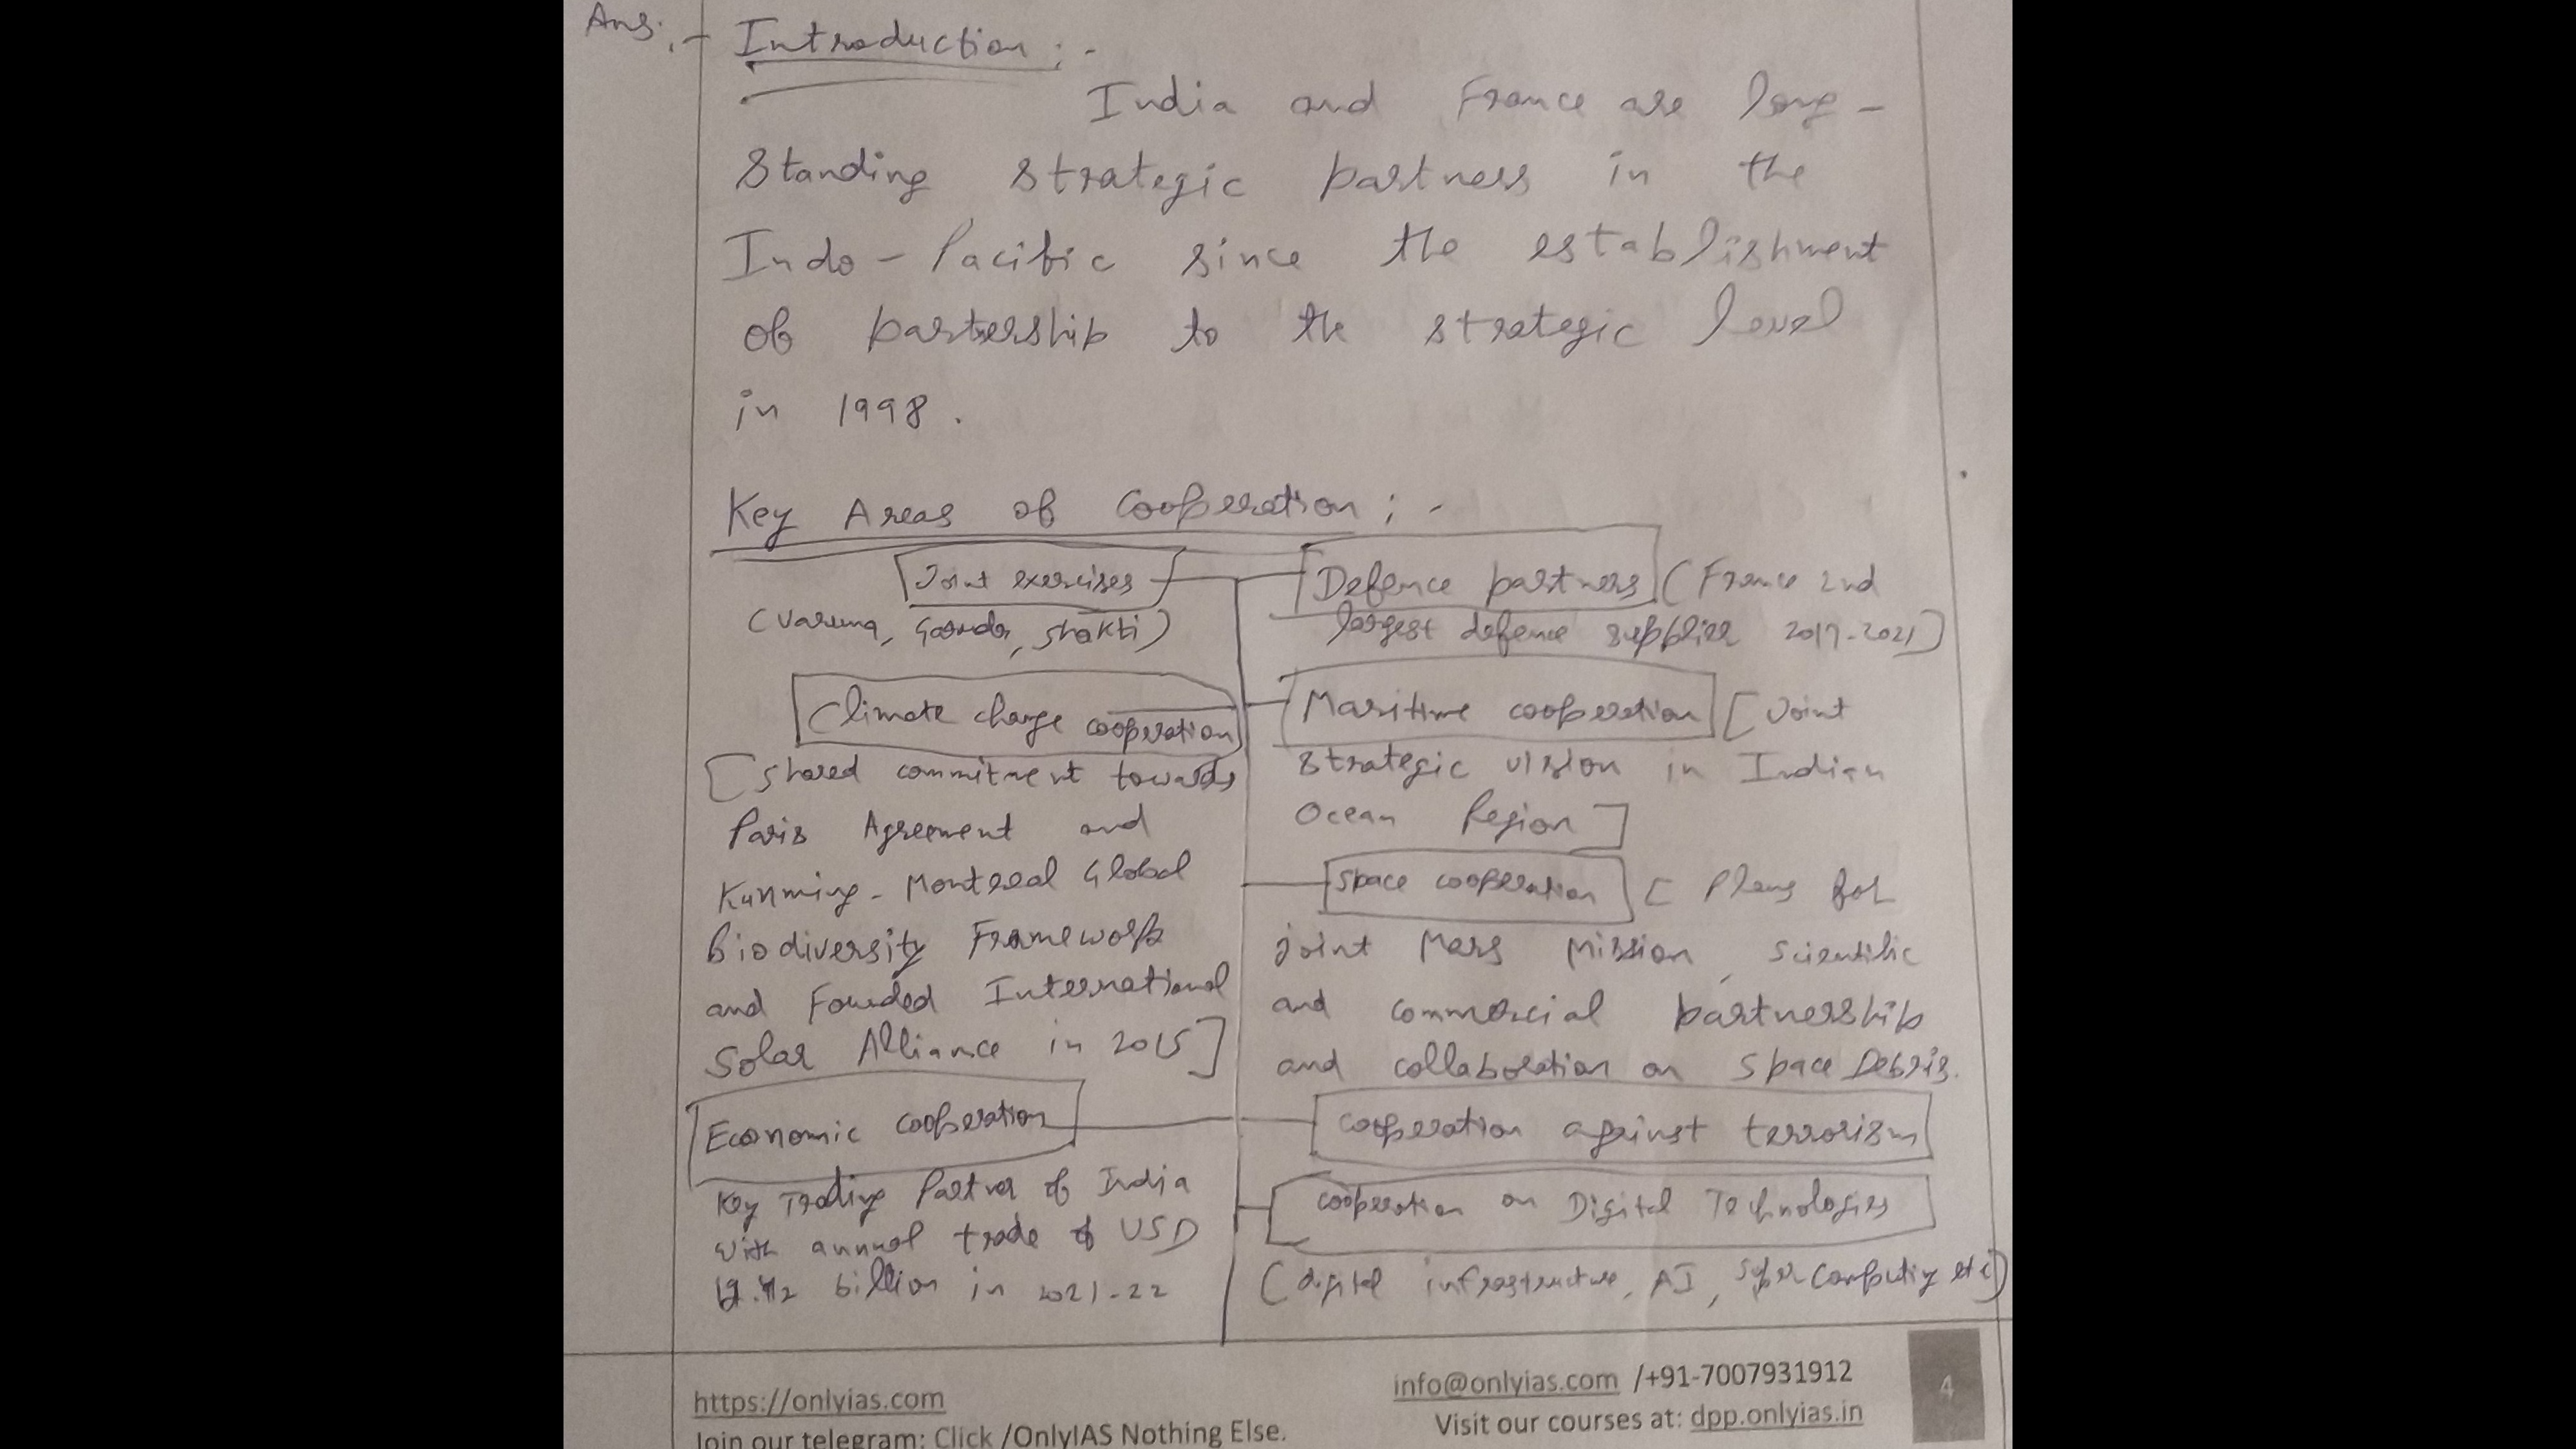 Ans:-
Introduction:-
India and France are long-
standing strategic partners in the
Indo-Pacific since the establishment
of partnership to the strategic level
in 1998.
Key Areas of cooperation:-
Joint exercises
(Varuna, Garuda, Shakti)
Climate change cooperation
[Shared commitment towards
Paris Agreement and
Kunming-Montreal Global
Biodiversity Framework
and Founded International
Solar Alliance in 2015]
Economic cooperation
Key Trading Partner of India
with annual trade of USD
billion in 2021-22
Defence partners (France 2nd
largest defence supplier 2017-2021]
Maritime cooperation [Joint
strategic vision in Indian
Ocean Region]
Space cooperation [Plans for
joint Mars Mission, scientific
and commercial partnership
and collaboration on Space Debris.
cooperation against terrorism
cooperation on Digital Technologies
(digital infrastructure, AI, super computing etc)
https://onlyias.com
Join our telegram: Click /OnlyIAS Nothing Else.
info@onlyias.com /+91-7007931912
Visit our courses at: dpp.onlyias.in
4